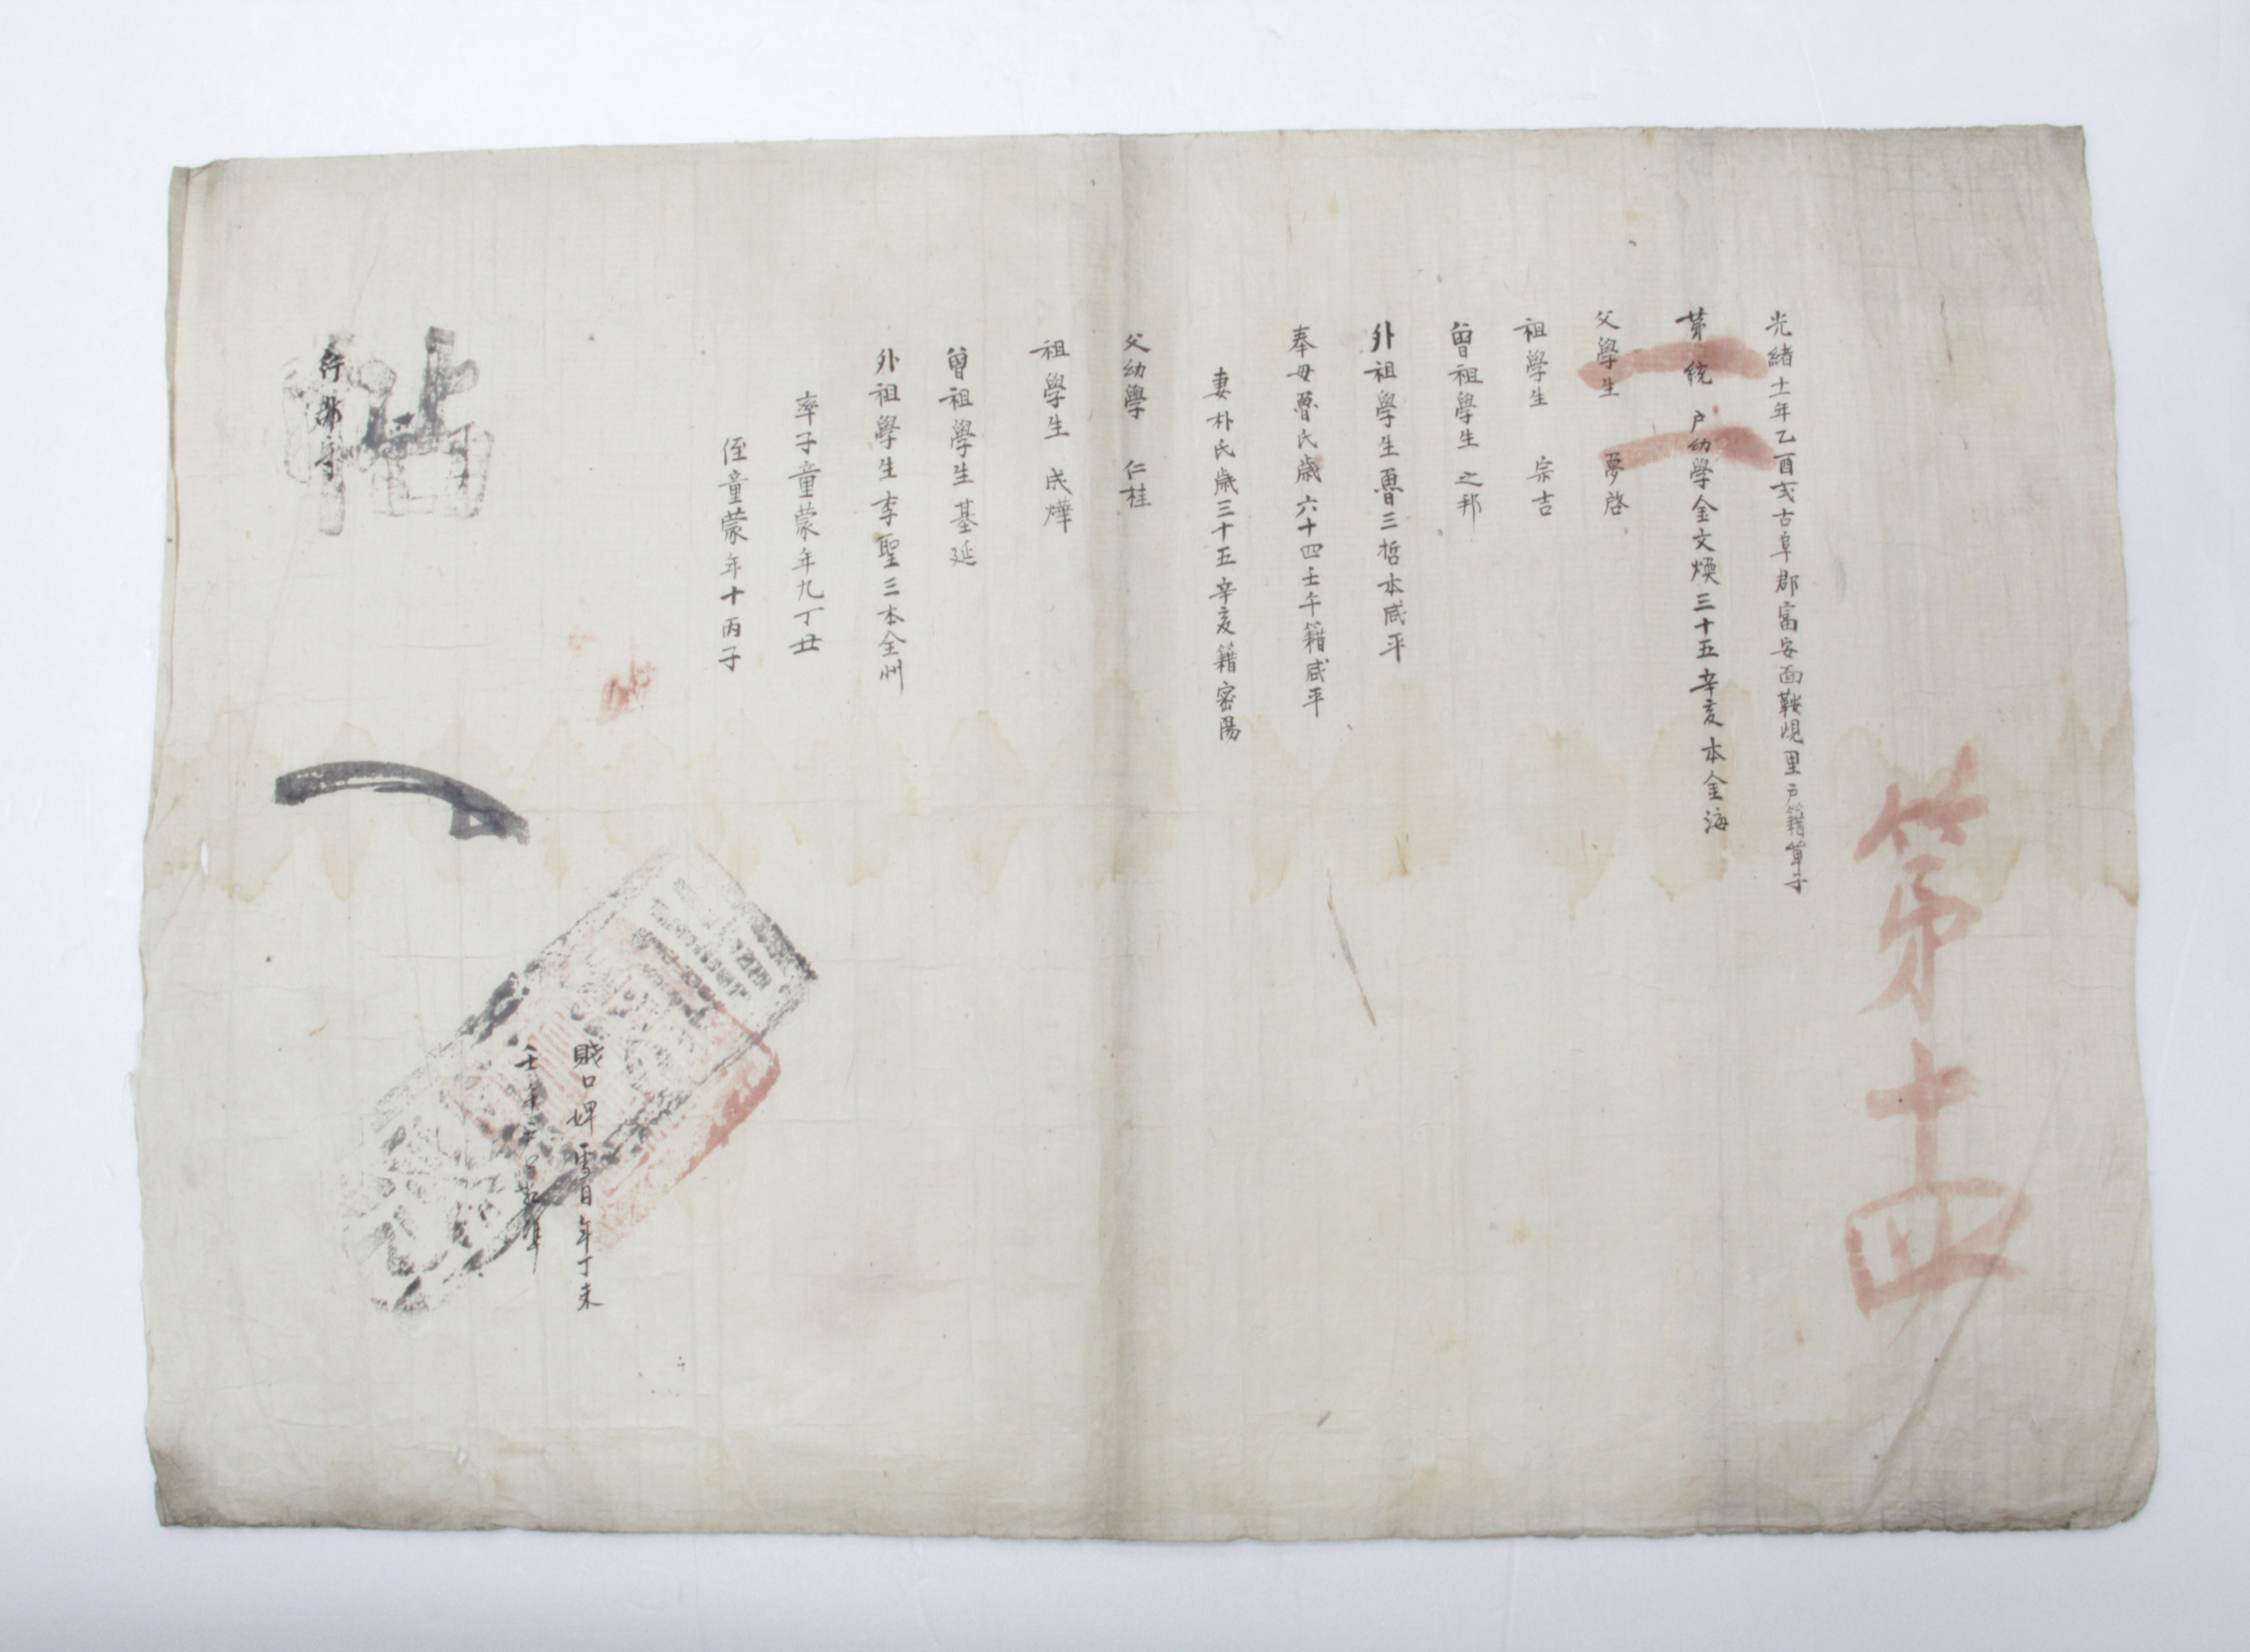 第十四
光緒十一年乙酉式古阜郡富安面鞍峴里戶籍單子
第一統一戶幼學金文煥三十五辛亥本金海
父學生 夢啓
祖學生 宗吉
曾祖學生之邦
外祖學生魯三哲本咸平
奉母魯氏歲六十四壬午籍咸平
妻朴氏歲三十五辛亥籍密陽
父幼學 仁桂
祖學生 成燁
曾祖學生 基延
外祖學生李聖三本全州
率子童蒙年九丁丑
侄童蒙年十丙子
賤口婢雪月年丁未
壬午戶口相準
帖
行郡守